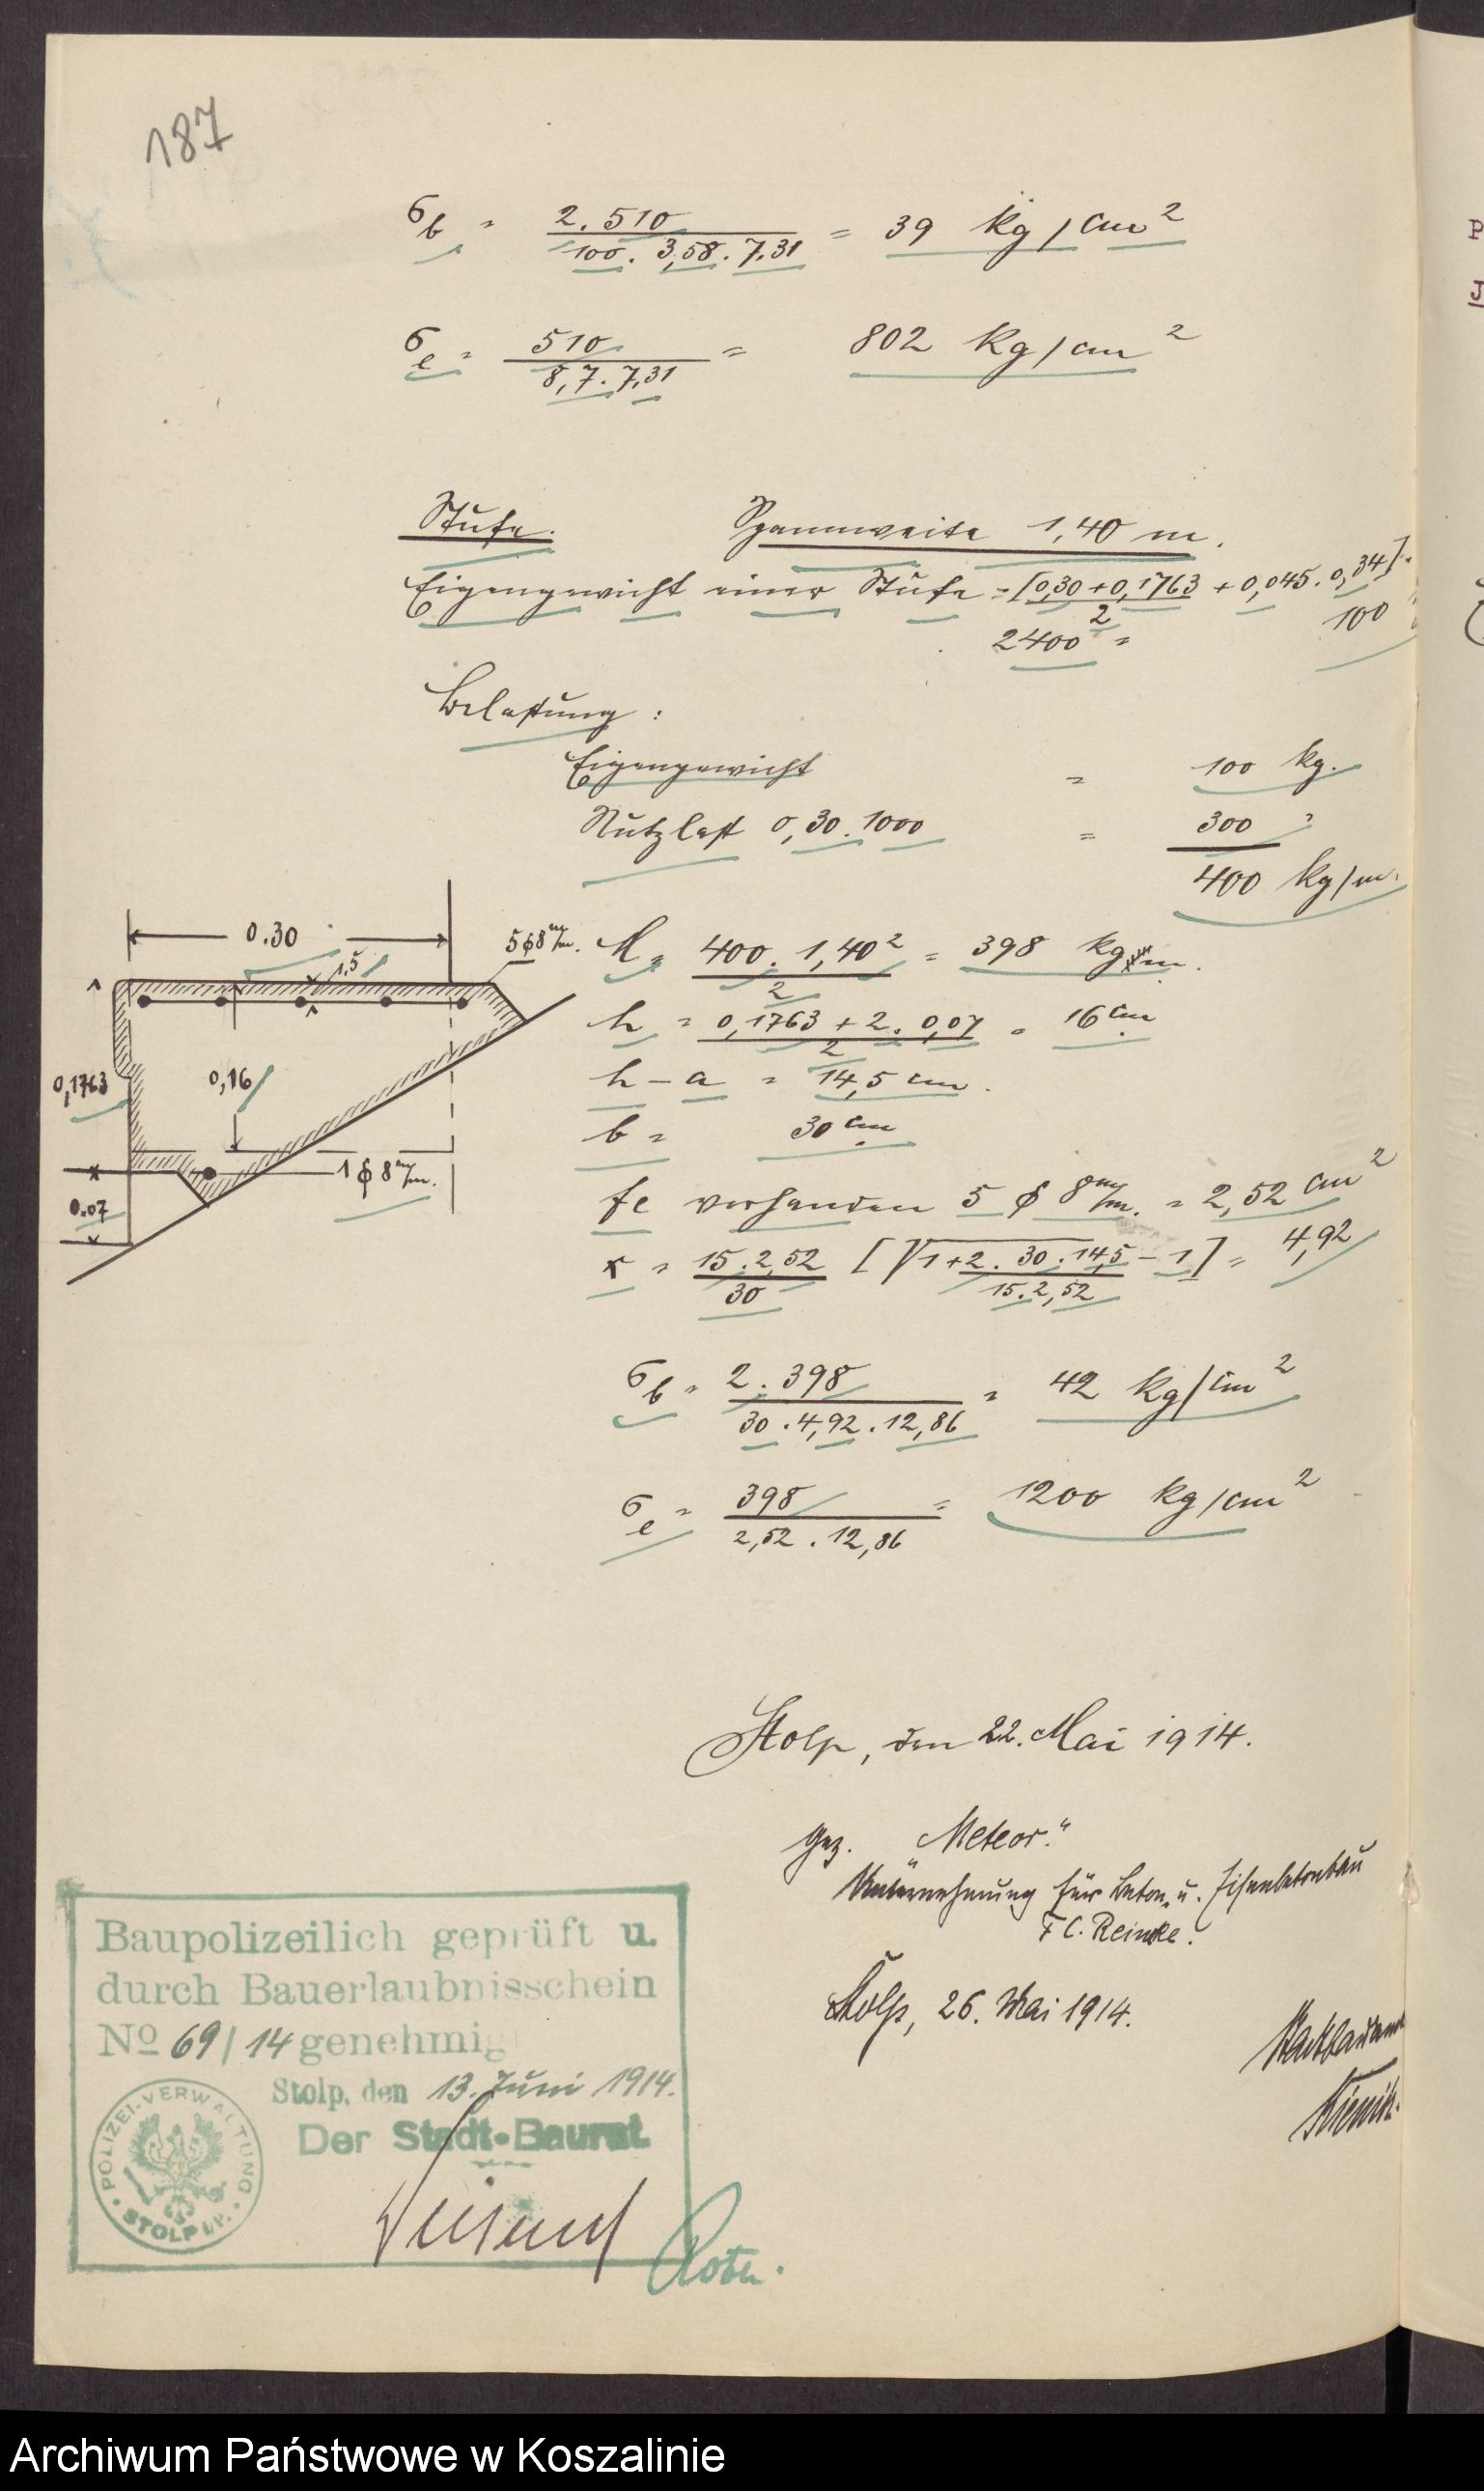 187
σb = 2.510 / 100. 3,58. 7,31 = 39 kg/cm²
σe = 510 / 8,7. 7,31 = 802 kg/cm²
Stufe. Spannweite 1,40 m.
Eigengewicht einer Stufe = [0,30 + 0,1763 / 2 + 0,045. 0,34].
2400 = 100
Belastung:
Eigengewicht = 100 kg.
Nutzlast 0,30. 1000 = 300 "
400 kg/m.
M = 400. 1,40² / 2 = 398 kgm.
h = 0,1763 + 2. 0,07 / 2 = 16 cm
h - a = 14,5 cm.
b = 30 cm
fe vorhanden 5 ϕ 8 m/m. = 2,52 cm²
x = 15. 2,52 / 30 [√1 + 2. 30. 14,5 / 15. 2,52 - 1] = 4,92
σb = 2. 398 / 30. 4,92. 12,86 = 42 kg/cm²
σe = 398 / 2,52. 12,86 = 1200 kg/cm²
0.30
1,5
5ϕ8 m/m.
0,1763
0,16
1 ϕ 8 m/m.
0.07
Stolp, den 22. Mai 1914.
gez. „Meteor."
Unternehmung für Beton- u. Eisenbetonbau
F C. Reincke.
Stolp, 26. Mai 1914.
Stadtbauamt
Baupolizeilich geprüft u.
durch Bauerlaubnisschein
No 69/14 genehmig
Stolp, den 13. Juni 1914.
Der Stadt-Baurat
POLIZEI-VERWALTUNG
STOLP i/P.
Archiwum Państwowe w Koszalinie